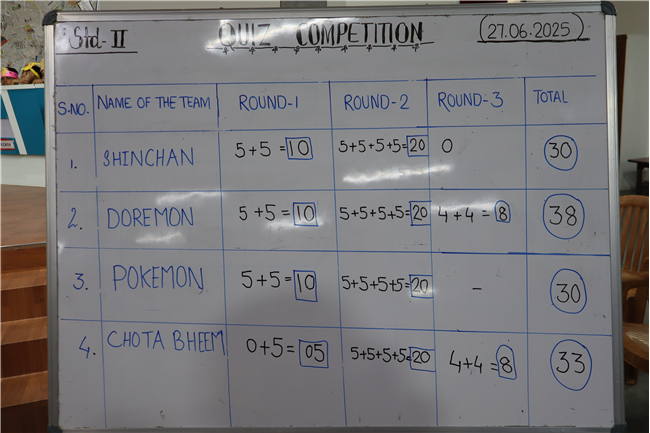 Std- II
QUIZ COMPETITION
27.06.2025
S.NO. NAME OF THE TEAM ROUND-1 ROUND-2 ROUND-3 TOTAL
1. SHINCHAN 5+5 =10 5+5+5+5=20 0 30
2. DOREMON 5+5=10 5+5+5+5=20 4+4=8 38
3. POKEMON 5+5=10 5+5+5+5=20 - 30
4. CHOTA BHEEM 0+5=05 5+5+5+5=20 4+4=8 33